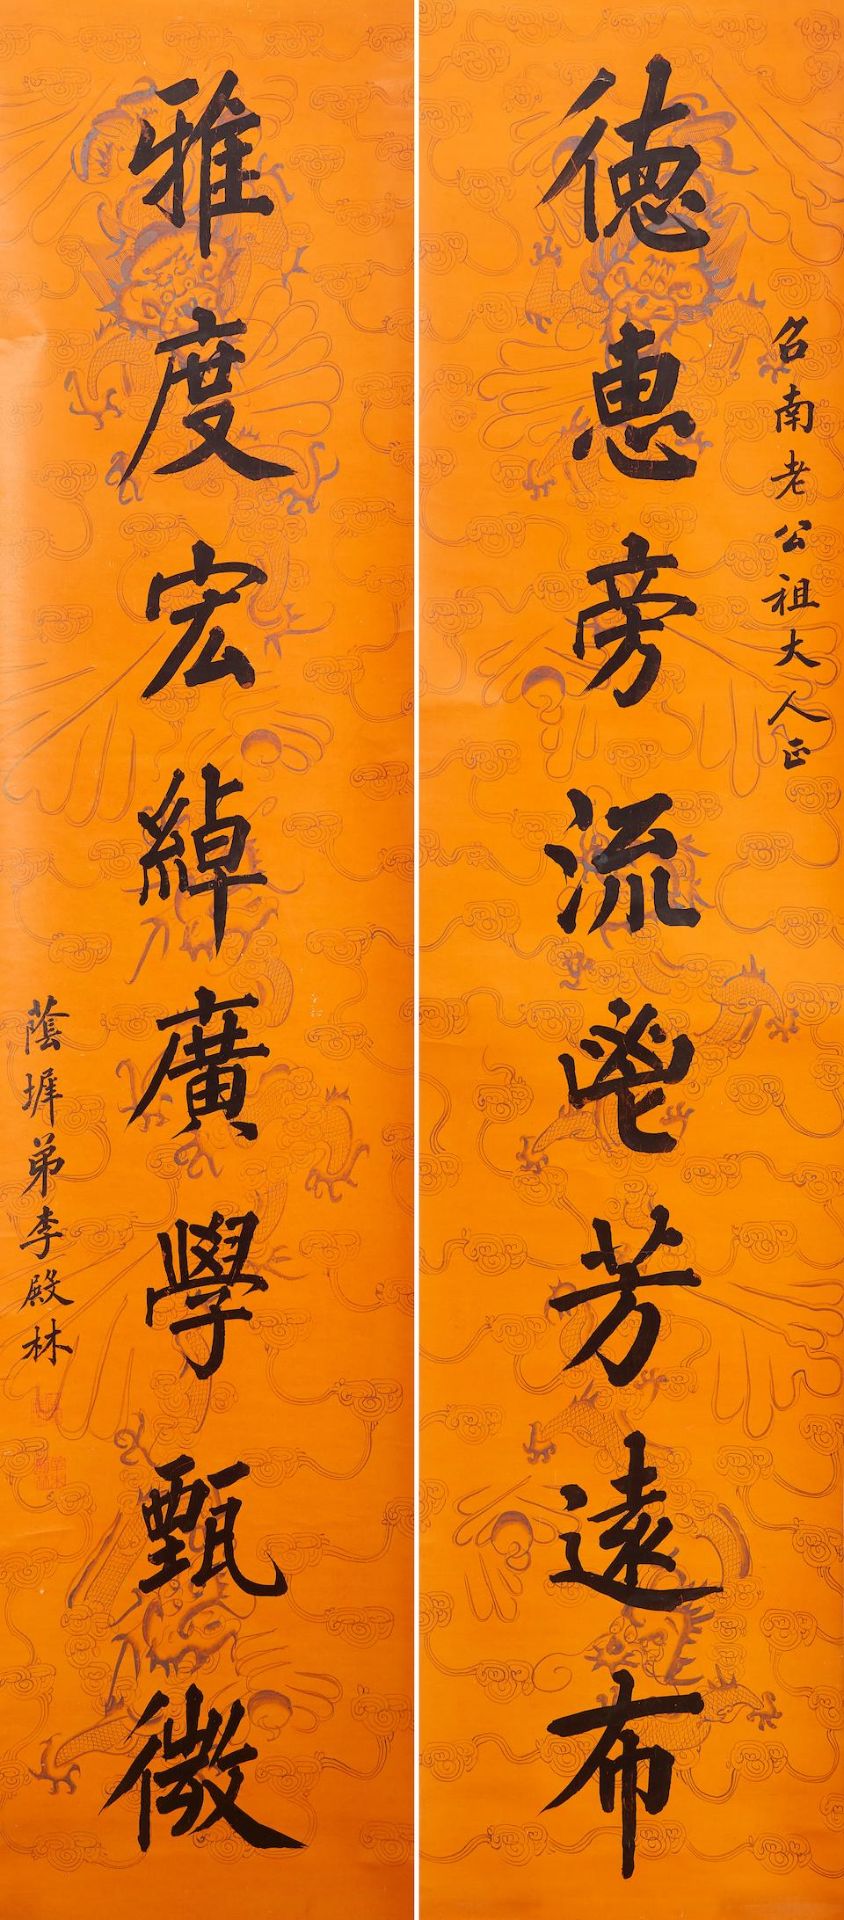 德惠旁流鬯芳遠布
召南老公祖大人正
雅度宏綽廣學甄微
蔭墀弟李殿林